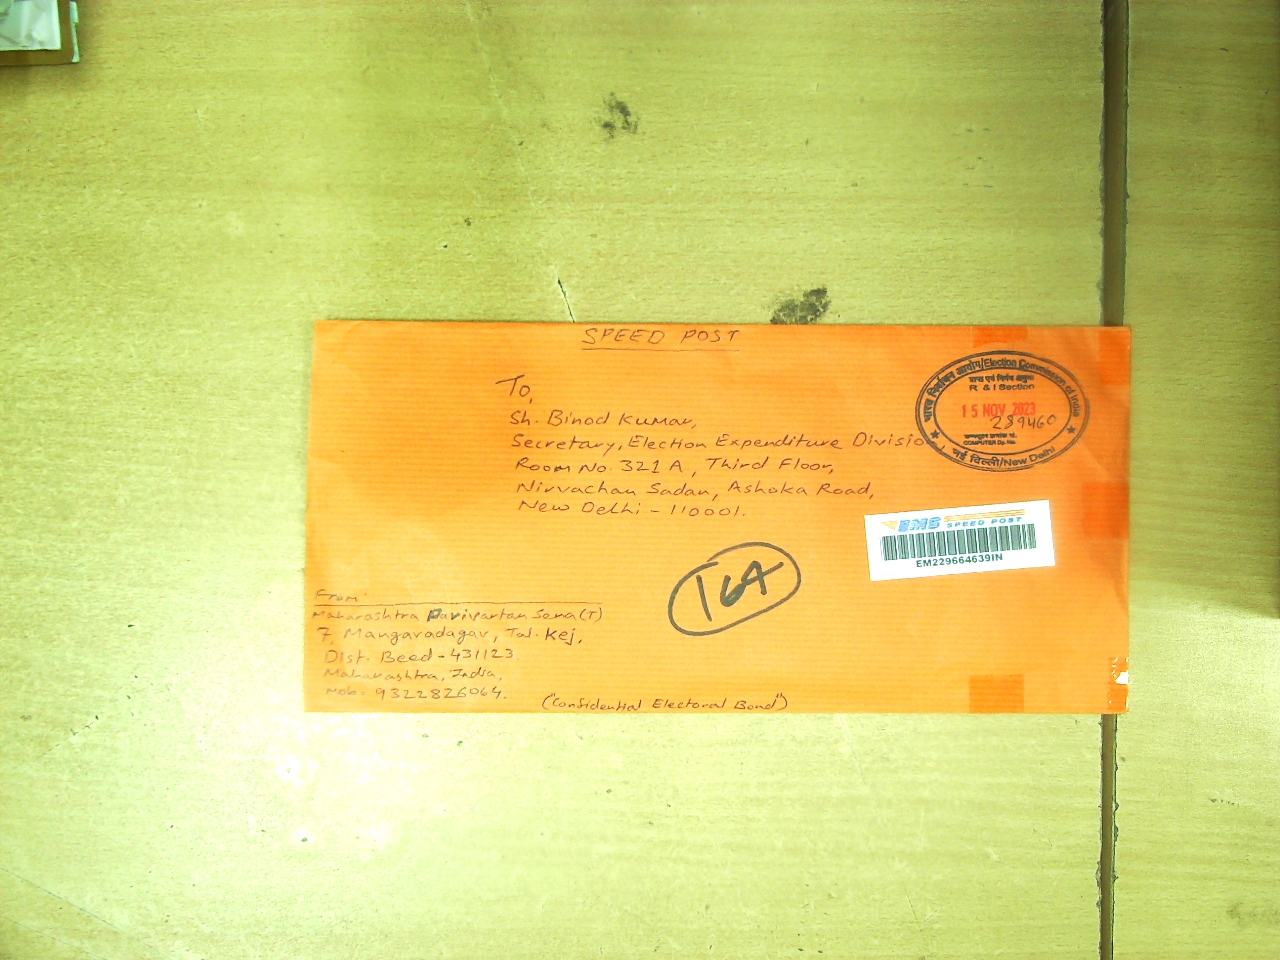 SPEED POST
To,
Sh. Binod Kumar,
Secretary, Election Expenditure Division
Room No. 321 A, Third Floor,
Nirvachan Sadan, Ashoka Road,
New Delhi - 110001.
भारत निर्वाचन आयोग/Election Commission of India
R & I Section
15 NOV 2023
289460
COMPUTER Dy. No.
नई दिल्ली/New Delhi
EMS SPEED POST
EM229664639IN
164
From:
Maharashtra Parivartan Sena (T)
7, Mangavadagav, Tal. Kej,
Dist. Beed - 431123
Maharashtra, India,
Mob: 9322826064.
("Confidential Electoral Bond")